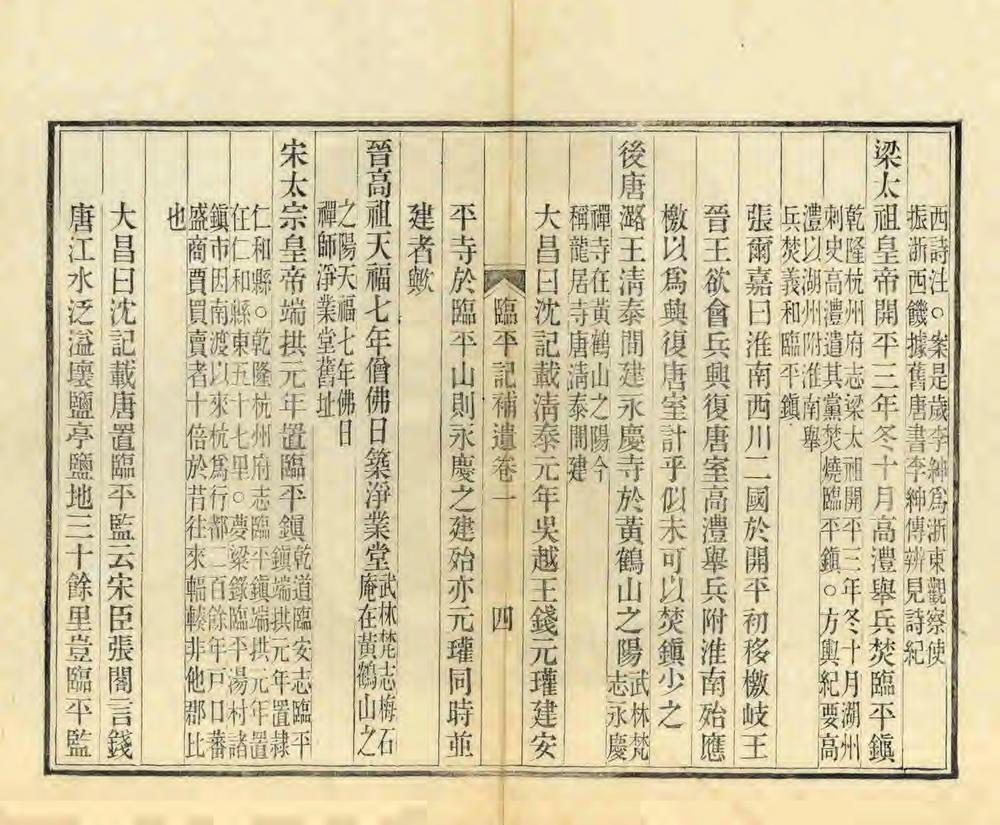 西詩注○案是歲李紳爲浙東觀察使
振浙西饑據舊唐書李紳傳辨見詩紀
梁太祖皇帝開平三年冬十月高澧舉兵焚臨平鎮
乾隆杭州府志梁太祖開平三年冬十月湖州
刺史高澧遣其黨焚燒臨平鎮○方輿紀要高
澧以湖州附淮南舉
兵焚義和臨平鎮
張爾嘉曰淮南西川二國於開平初移檄岐王
晉王欲會兵興復唐室高澧舉兵附淮南殆應
檄以爲興復唐室計乎似未可以焚鎮少之
後唐潞王淸泰間建永慶寺於黃鶴山之陽
武林梵
志永慶
禪寺在黃鶴山之陽今
稱龍居寺唐淸泰間建
大昌曰沈記載淸泰元年吳越王錢元瓘建安
臨平記補遺卷一
四
平寺於臨平山則永慶之建殆亦元瓘同時並
建者歟
晉高祖天福七年僧佛日築淨業堂
武林梵志梅石
庵在黃鶴山之
之陽天福七年佛日
禪師淨業堂舊址
宋太宗皇帝端拱元年置臨平鎮
乾道臨安志臨平
鎮端拱元年置隸
仁和縣○乾隆杭州府志臨平鎮端拱元年置
在仁和縣東五十七里○夢粱錄臨平湯村諸
鎮市因南渡以來杭爲行都二百餘年戶口蕃
盛商賈買賣者十倍於昔往來輻輳非他郡比
也
大昌曰沈記載唐置臨平監云宋臣張閣言錢
唐江水泛溢壞鹽亭鹽地三十餘里豈臨平監